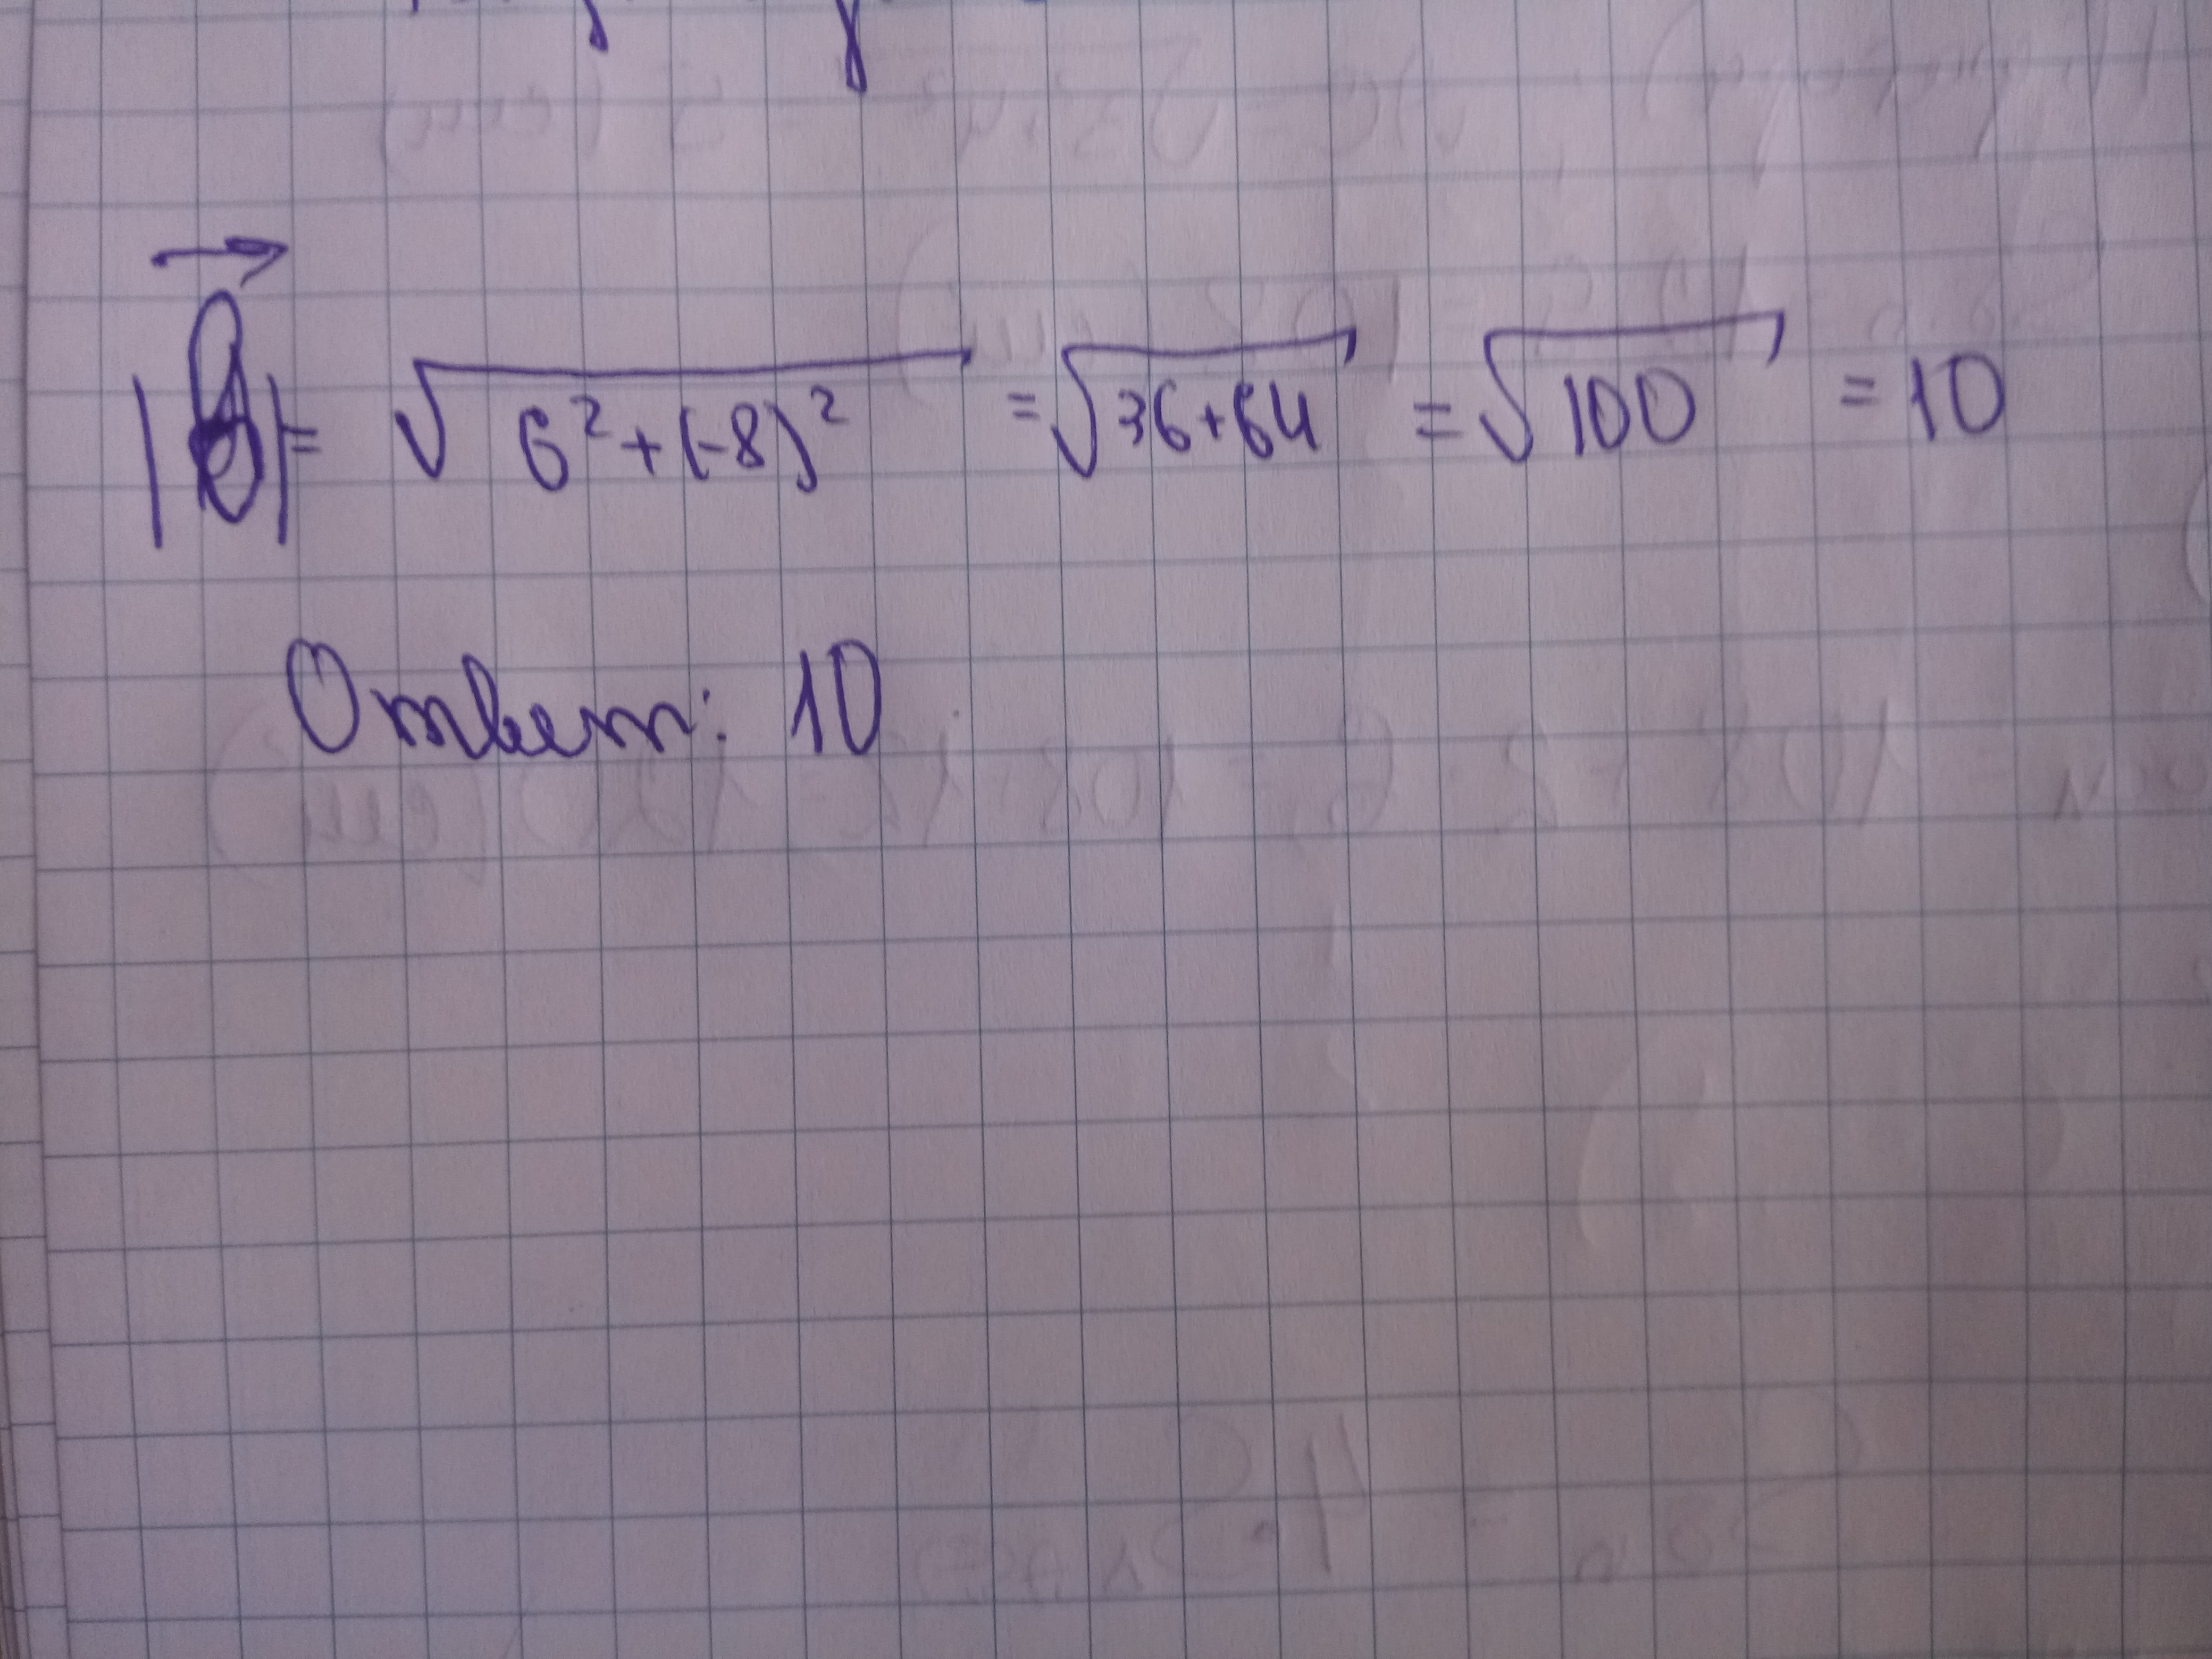 |b⃗| = √(6² + (-8)²) = √(36+64) = √100 = 10
Ответ: 10